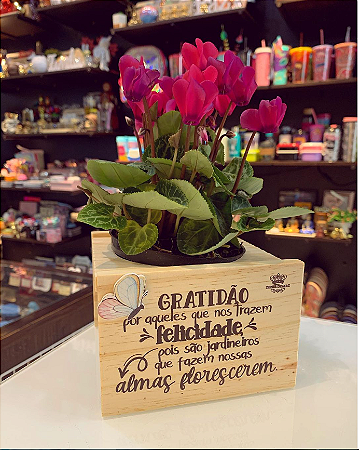 GRATIDÃO
por aqueles que nos trazem
felicidade,
pois são jardineiros
que fazem nossas
almas florescerem.